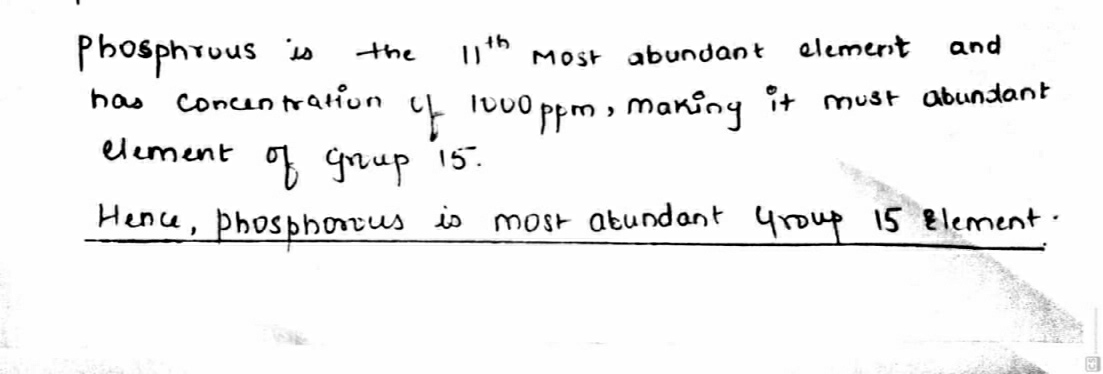 Phosphruus is the 11th Most abundant element and
has concentration of 1000 ppm, making it must abundant
element of group 15.
Hence, phosphorous is most abundant Group 15 Element.